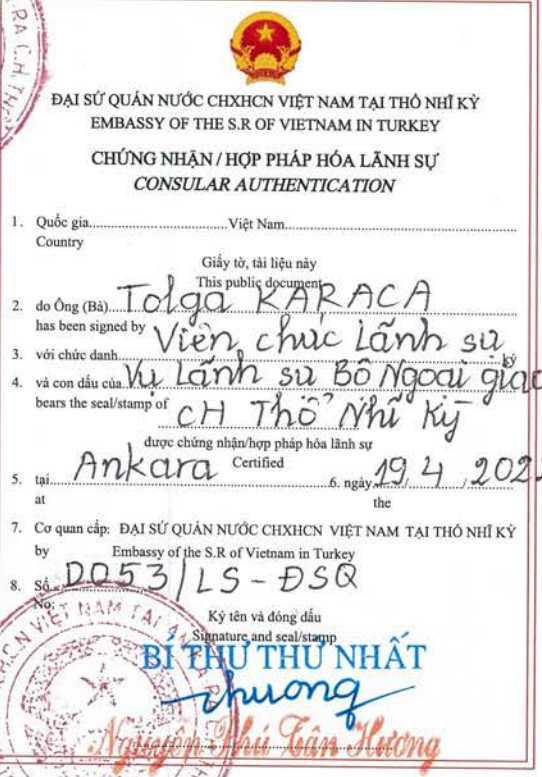 ĐẠI SỨ QUÁN NƯỚC CHXHCN VIỆT NAM TẠI THỔ NHĨ KỲ
EMBASSY OF THE S.R OF VIETNAM IN TURKEY
CHỨNG NHẬN / HỢP PHÁP HÓA LÃNH SỰ
CONSULAR AUTHENTICATION
1. Quốc gia..........Việt Nam..........
Country
Giấy tờ, tài liệu này
This public document
2. do Ông (Bà) Tolga KARACA
has been signed by
3. với chức danh Viên chức Lãnh sự ký
4. và con dấu của Vụ Lãnh sự Bộ Ngoại giao
bears the seal/stamp of CH Thổ Nhĩ Kỳ
được chứng nhận/hợp pháp hóa lãnh sự
Certified
5. tại Ankara 6. ngày 19, 4, 202
at the
7. Cơ quan cấp: ĐẠI SỨ QUÁN NƯỚC CHXHCN VIỆT NAM TẠI THỔ NHĨ KỲ
by Embassy of the S.R of Vietnam in Turkey
8. Số D053/LS-ĐSQ
No:
Ký tên và đóng dấu
Signature and seal/stamp
BÍ THƯ THỨ NHẤT
Nguyễn Phú Tân Hương